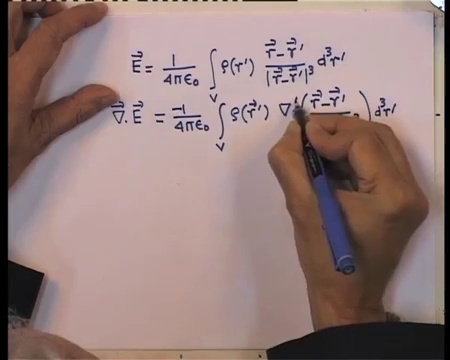 E⃗ = 1/4πε₀ ∫_V ρ(r′) (r⃗ − r⃗′)/|r⃗ − r⃗′|³ d³r′
∇⃗ · E⃗ = −1/4πε₀ ∫_V ρ(r⃗′) ∇′ (r⃗ − r⃗′) d³r′